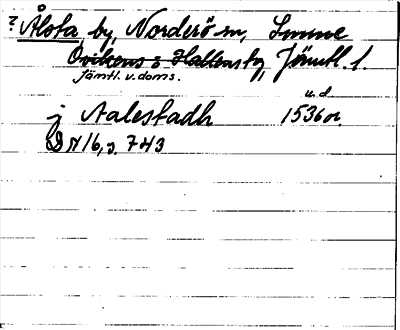 ? Ålsta by, Norderö sn, Sunne
Ovikens o Hallens tg, Jämtl. l.
Jämtl. v. doms.
u. d.
j Aalestadh 1536 or.
DN 16, s. 743